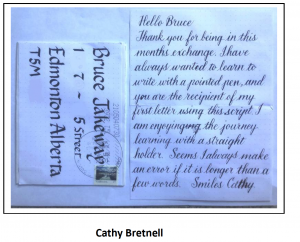 Bruce Jakeway
1 7 ~ 5 Street
Edmonton Alberta
T5M
Hello Bruce
Thank you for being in this
months exchange. I have
always wanted to learn to
write with a pointed pen, and
you are the recipient of my
first letter using this script. I
am enjoyinging the journey
learning with a straight
holder. Seems I always make
an error if it is longer than a
few words. Smiles Cathy
Cathy Bretnell